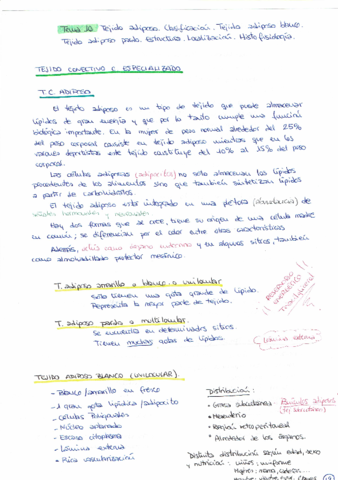 Tema 10 Tejido adiposo. Clasificación. Tejido adiposo blanco.
Tejido adiposo pardo. Estructura. Localización. Histofisiología.
TEJIDO CONECTIVO C. ESPECIALIZADO
T.C. ADIPOSO
El tejido adiposo es un tipo de tejido que puede almacenar
lípidos de gran energía y que por lo tanto cumple una función
biológica importante. En la mujer de peso normal alrededor del 25%
del peso corporal consiste en tejido adiposo mientras que en los
varones este tejido constituye del 10% al 15% del peso
corporal.
Las células adiposas (adipocitos) no solo almacenan los lípidos
procedentes de los alimentos sino que también sintetizan lípidos
a partir de carbohidratos.
El tejido adiposo está integrado en una (abundancia) de
Hay dos formas que se cree, tiene su origen de una célula madre
en común; se diferencian por el color entre otras características
Además, actúa como órgano endocrino y en algunos sitios, también
como almohadillado protector mecánico.
T. adiposo amarillo o blanco o unilocular
Solo tienen una gota grande de lípido.
Representa la mayor parte de tejido.
T. adiposo pardo o multilocular.
Se encuentra en determinados sitios.
Tienen muchas gotas de lípidos.
TEJIDO ADIPOSO BLANCO (UNILOCULAR)
- Blanco/amarillo en fresco
- 1 gran gota lipídica/adipocito
- Células
- Núcleo
- Escaso citoplasma
- Lámina externa
- Rica vascularización
Distribución:
• Grasa subcutánea
• Mesenterio
• Región retroperitoneal
• Alrededor de los órganos.
Distinta distribución según edad, sexo
y nutricional: niños; uniforme